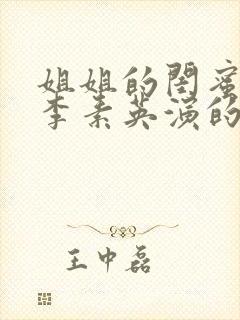 姐姐的闺蜜
李素英演的
王中磊